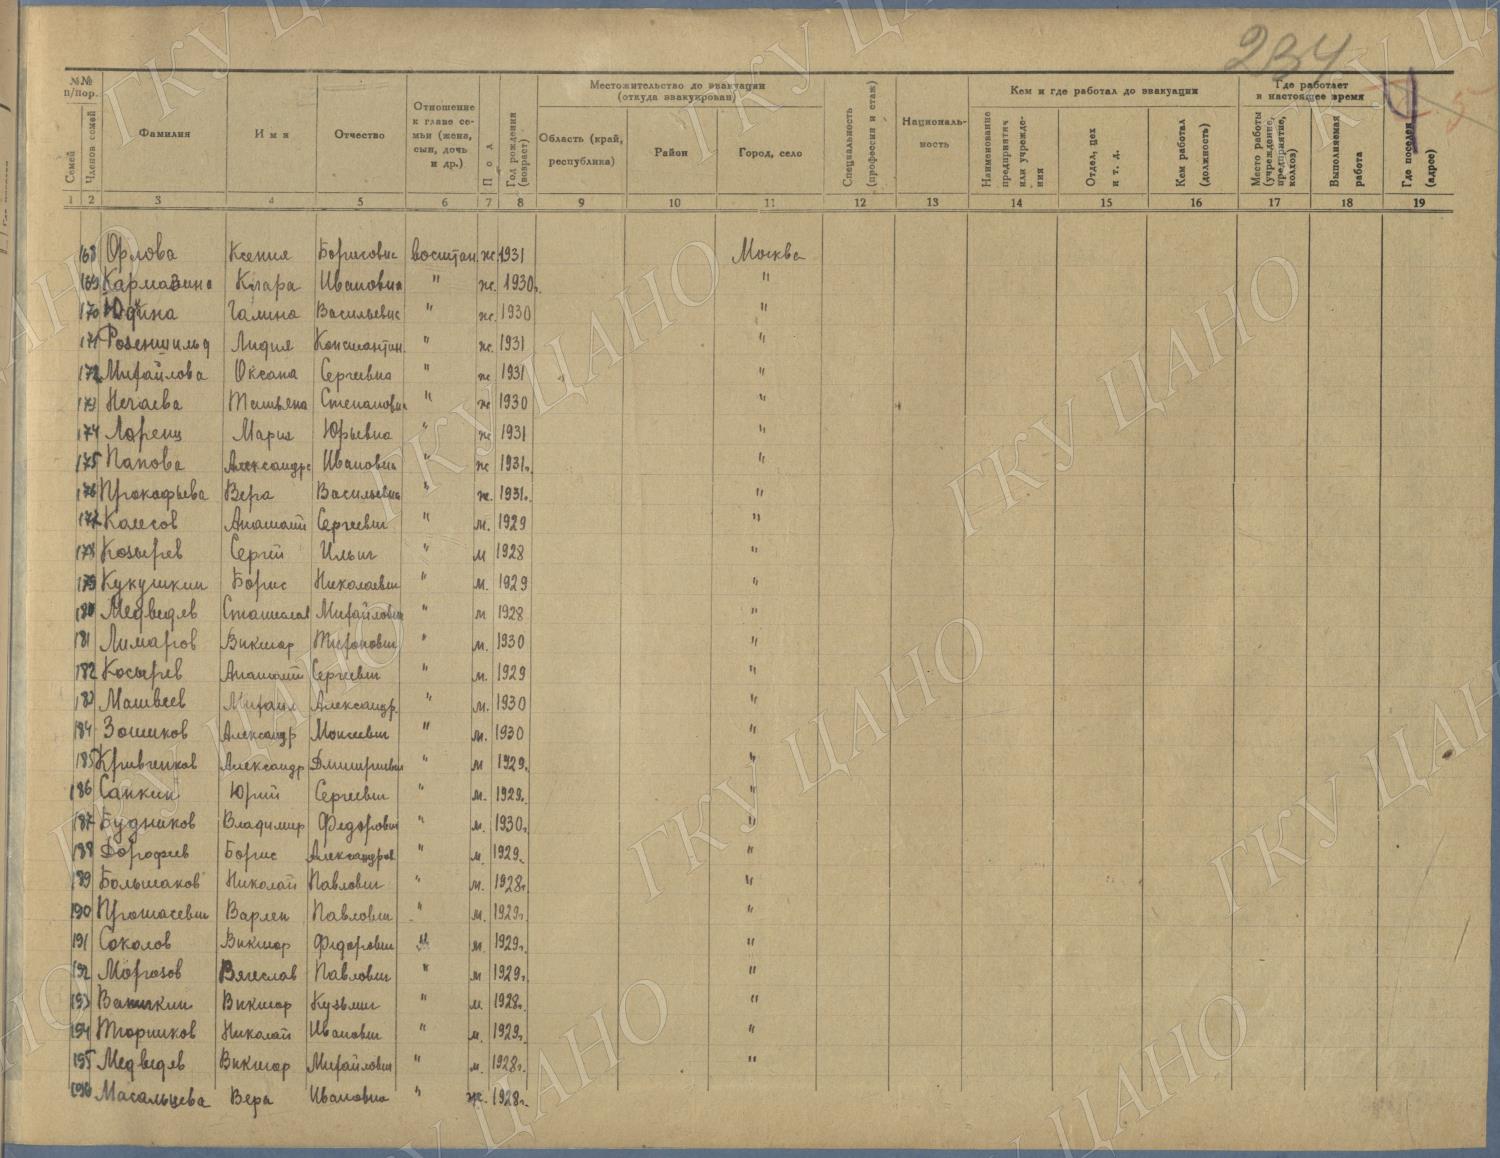 234
5
№№ п/пор.
Семей
Членов семей
Фамилия
Имя
Отчество
Отношение к главе семьи (жена, сын, дочь и др.)
Пол
Год рождения (возраст)
Местожительство до эвакуации (откуда эвакуирован)
Область (край, республика)
Район
Город, село
Специальность (профессия и стаж)
Националь-ность
Кем и где работал до эвакуации
Наименование предприятия или учрежде-ния
Отдел, цех и т. д.
Кем работал (должность)
Где работает в настоящее время
Место работы (учреждение, предприятие, колхоз)
Выполняемая работа
Где поселен (адрес)
1 2 3 4 5 6 7 8 9 10 11 12 13 14 15 16 17 18 19
168 Орлова Ксения Борисовн воспитан. ж 1931 Москва
169 Кармазина Клара Ивановна " ж. 1930г. "
170 Юдина Галина Васильевн " ж. 1930 "
171 Розеншильд Лидия Константин. " ж. 1931 "
172 Михайлова Оксана Сергеевна " ж 1931 "
173 Нечаева Татьяна Степановн " ж 1930 "
174 Лоренц Мария Юрьевна " ж 1931 "
175 Папова Александра Ивановна " ж 1931г. "
176 Прокофьева Вера Васильевна " ж. 1931г. "
177 Колесов Анатолий Сергеевич " м. 1929 "
178 Козырев Сергей Ильич " м 1928 "
179 Кукушкин Борис Николаевич " м. 1929 "
180 Медведев Станислав Михайлович " м 1928 "
181 Лимаров Виктор Тихонович " м. 1930 "
182 Косырев Анатолий Сергеевич " м. 1929 "
183 Матвеев Михаил Александр. " м. 1930 "
184 Зотиков Александр Моисеевич " м. 1930 "
185 Кривченков Александр Дмитриевич " м 1929. "
186 Сапкин Юрий Сергеевич " м. 1929. "
187 Будников Владимир Федорович " м. 1930г. "
188 Дорофеев Борис Александров " м. 1929. "
189 Большаков Николай Павлович " м. 1928г. "
190 Протасевич Варлен Павлович " м. 1929г. "
191 Соколов Виктор Федорович " м. 1929г. "
192 Морозов Вячеслав Павлович " м 1929г. "
193 Виктор Кузьмич " м. 1928г. "
194 Торшков Николай Иванович " м. 1929г. "
195 Медведев Виктор Михайлович " м. 1928г. "
196 Масальцева Вера Ивановна " ж. 1928г.
ГКУ ЦАНО